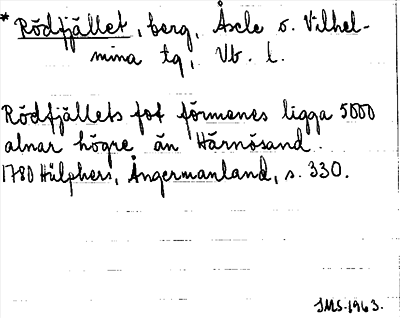 * Rödfjället, berg, Åsele o. Vilhel-
mina tg, Vb. l.
Rödfjällets fot förmenes ligga 5000
alnar högre än Härnösand.
1780 Hülphers, Ångermanland, s. 330.
JMS. 1963.